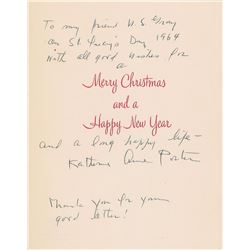 To my friend W.S. Gray
on St Lucy's Day, 1964
With all good wishes for
a
Merry Christmas
and a
Happy New Year
and a long happy life—
Katherine Anne Porter
Thank you for your
good letter!